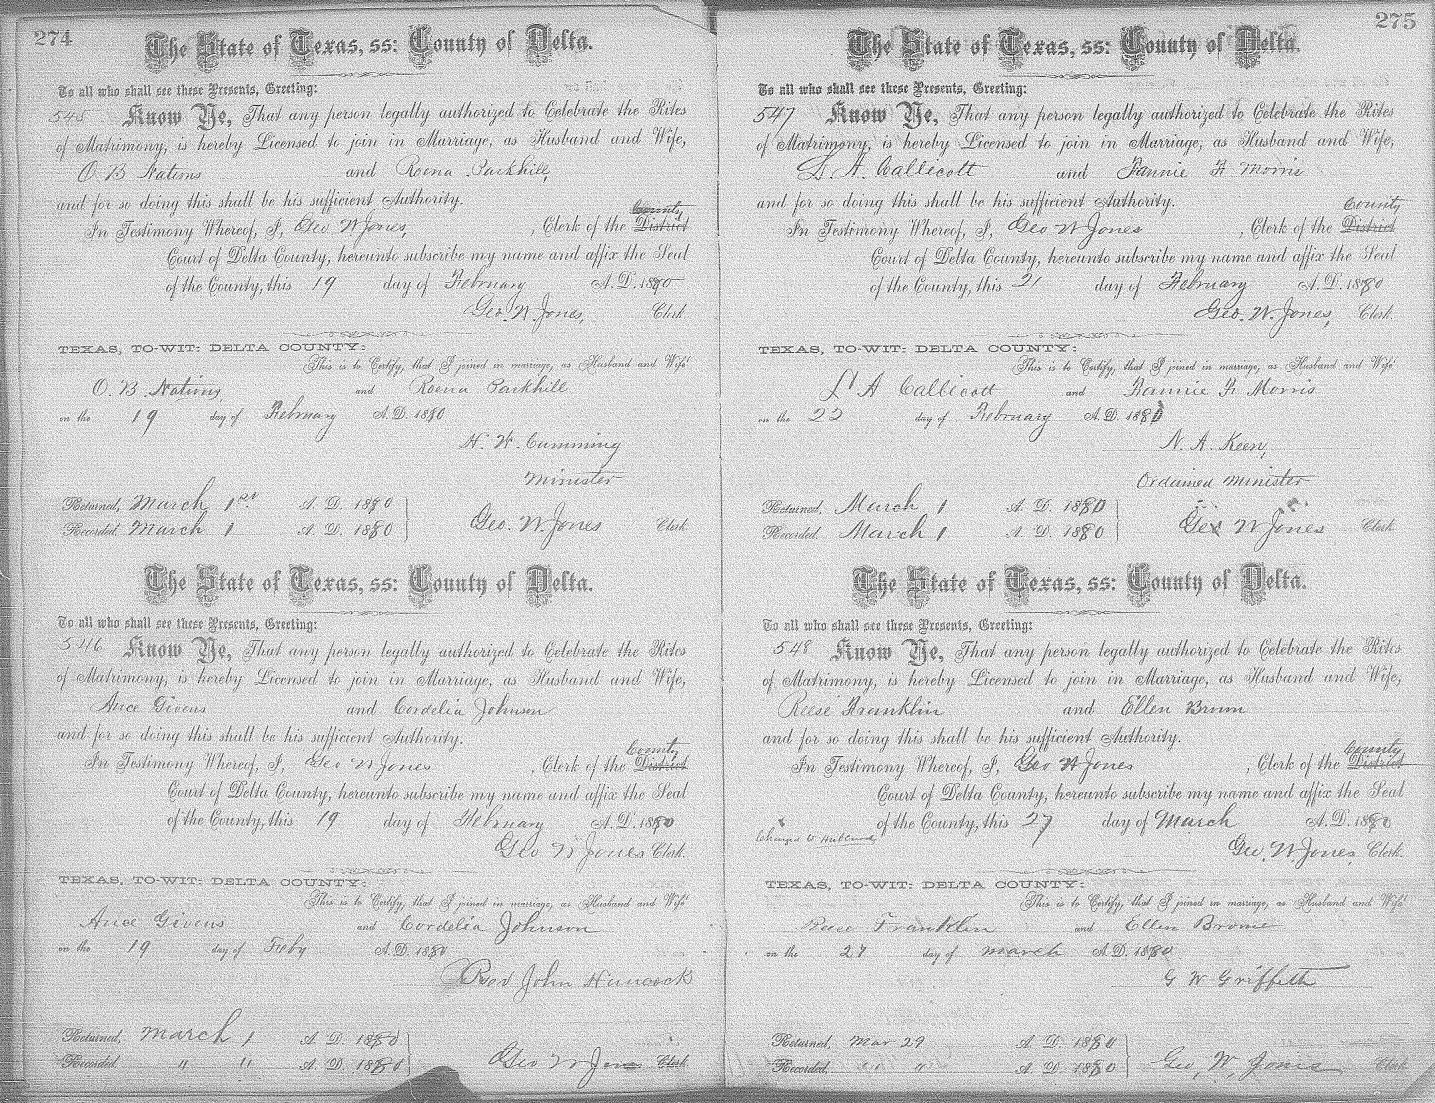 274
The State of Texas, ss: County of Delta.
To all who shall see these Presents, Greeting:
545 Know Ye, That any person legally authorized to Celebrate the Rites
of Matrimony, is hereby Licensed to join in Marriage, as Husband and Wife,
O B Nations and Roena Parkhill,
and for so doing this shall be his sufficient Authority.
County
In Testimony Whereof, I, Geo W Jones, , Clerk of the District
Court of Delta County, hereunto subscribe my name and affix the Seal
of the County, this 19 day of February A. D. 1880
Geo. W. Jones, Clerk.
TEXAS, TO-WIT: DELTA COUNTY:
This is to Certify, that I joined in marriage, as Husband and Wife
O. B. Nations and Roena Parkhill
on the 19 day of February A. D. 1880
H. W. Cumming
Minister
Returned, March 1st A. D. 1880
Recorded, March 1 A. D. 1880 Geo. W. Jones Clerk
The State of Texas, ss: County of Delta.
To all who shall see these Presents, Greeting:
546 Know Ye, That any person legally authorized to Celebrate the Rites
of Matrimony, is hereby Licensed to join in Marriage, as Husband and Wife,
Ance Givens and Cordelia Johnson
and for so doing this shall be his sufficient Authority.
County
In Testimony Whereof, I, Geo W Jones , Clerk of the District
Court of Delta County, hereunto subscribe my name and affix the Seal
of the County, this 19 day of February A. D. 1880
Geo W Jones Clerk.
TEXAS, TO-WIT: DELTA COUNTY:
This is to Certify, that I joined in marriage, as Husband and Wife
Ance Givens and Cordelia Johnson
on the 19 day of Feby A. D. 1880
Rev John Hancock
Returned, March 1 A. D. 1880
Recorded. " " A. D. 1880 Geo W Jones Clerk
275
The State of Texas, ss: County of Delta.
To all who shall see these Presents, Greeting:
547 Know Ye, That any person legally authorized to Celebrate the Rites
of Matrimony, is hereby Licensed to join in Marriage, as Husband and Wife,
L. A. Callicott and Fannie F Morris
and for so doing this shall be his sufficient Authority.
County
In Testimony Whereof, I, Geo W Jones , Clerk of the District
Court of Delta County, hereunto subscribe my name and affix the Seal
of the County, this 21 day of February A. D. 1880
Geo. W. Jones, Clerk.
TEXAS, TO-WIT: DELTA COUNTY:
This is to Certify, that I joined in marriage, as Husband and Wife
L A Callicott and Fannie F Morris
on the 22 day of February A. D. 1880
N. A. Keen,
Ordained Minister
Returned, March 1 A. D. 1880
Recorded, March 1 A. D. 1880 Geo W Jones Clerk
The State of Texas, ss: County of Delta.
To all who shall see these Presents, Greeting:
548 Know Ye, That any person legally authorized to Celebrate the Rites
of Matrimony, is hereby Licensed to join in Marriage, as Husband and Wife,
Reese Franklin and Ellen Brum
and for so doing this shall be his sufficient Authority.
County
In Testimony Whereof, I, Geo W Jones , Clerk of the District
Court of Delta County, hereunto subscribe my name and affix the Seal
of the County, this 27 day of March A. D. 1880
Changed to
Geo, W Jones, Clerk.
TEXAS, TO-WIT: DELTA COUNTY:
This is to Certify, that I joined in marriage, as Husband and Wife
Franklin and Ellen Brome
on the 27 day of March A. D. 1880
G W Griffeth
Returned, Mar 29 A. D. 1880
Recorded. " " A. D. 1880 Geo, W, Jones Clerk